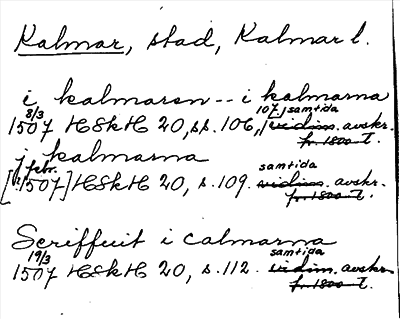 Kalmar, stad, Kalmar l.
i kalmaren -- i kalmarna
8/3 107, samtida
1507 HSkH 20, ss. 106, vidim. avskr.
fr. 1800-t.
j kalmarna
febr. samtida
[1507] HSkH 20, s. 109. vidim. avskr.
fr. 1800-t.
Scriffuit i calmarna
19/3 samtida
1507 HSkH 20, s. 112. vidim. avskr.
fr. 1800-t.